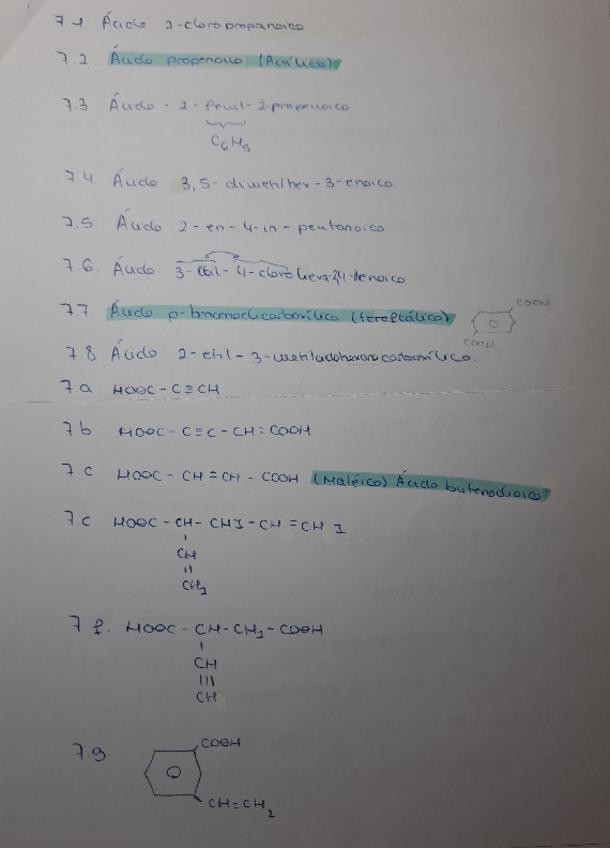 7.1 Ácido 2-cloropropanoico
7.2. Áudo propenoico (Acrílico)
7.3 Áudo - 2 - fenil - 2-propenoico
C6H5
7.4. Áudo 3,5- dimethlhex - 3-enoico.
7.5. Áudo 2 - en - 4-in - pentanoico
7.6. Áudo 3-etil - 4-cloro hexa-2,4-dienoico
7.7 Áudo p-bencenodicarboxílico (tereftálico)
COOH
COOH
7.8 Ácido 2-etil - 3-metilciclohexanocarboxílico.
7a HOOC - C≡CH
7b HOOC - C≡C - CH=COOH
7c HOOC - CH=CH - COOH (Maléico) Ácido butenodioico
7c HOOC - CH - CHI - CH=CH I
CH
=
CH2
7f. HOOC - CH-CH2 - COOH
CH
≡
CH
7.g.
COOH
CH=CH2